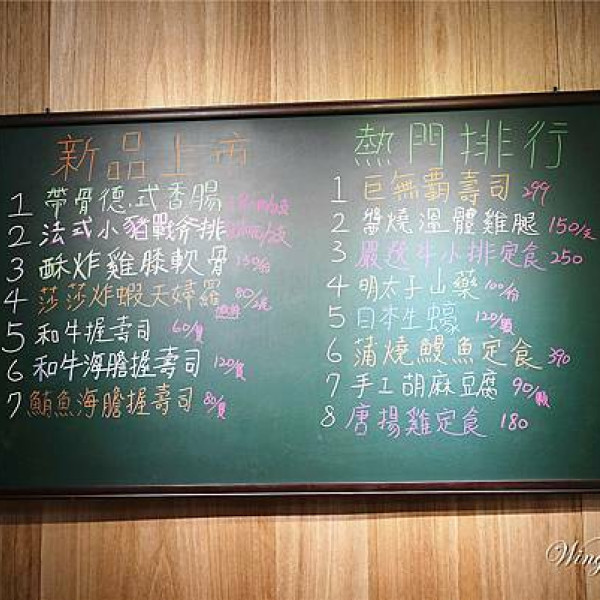 新品上市
1 帶骨德式香腸
2 法式小豬戰斧排
3 酥炸雞膝軟骨 130/份
4 莎莎炸蝦天婦羅 80/2尾
5 和牛握壽司 60/貫
6 和牛海膽握壽司 120/貫
7 鮪魚海膽握壽司 80/貫
熱門排行
1 巨無霸壽司 299
2 醬燒溫體雞腿 150/支
3 嚴選牛小排定食 250
4 明太子山藥 100/份
5 日本生蠔 120/顆
6 蒲燒鰻魚定食 390
7 手工胡麻豆腐 90/顆
8 唐揚雞定食 180
Wing